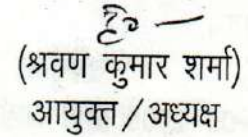 (श्रवण कुमार शर्मा)
आयुक्त / अध्यक्ष